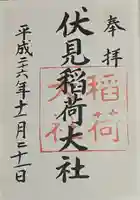 奉拝
伏見稲荷大社
平成二十六年十一月二十一日
稲荷
大社